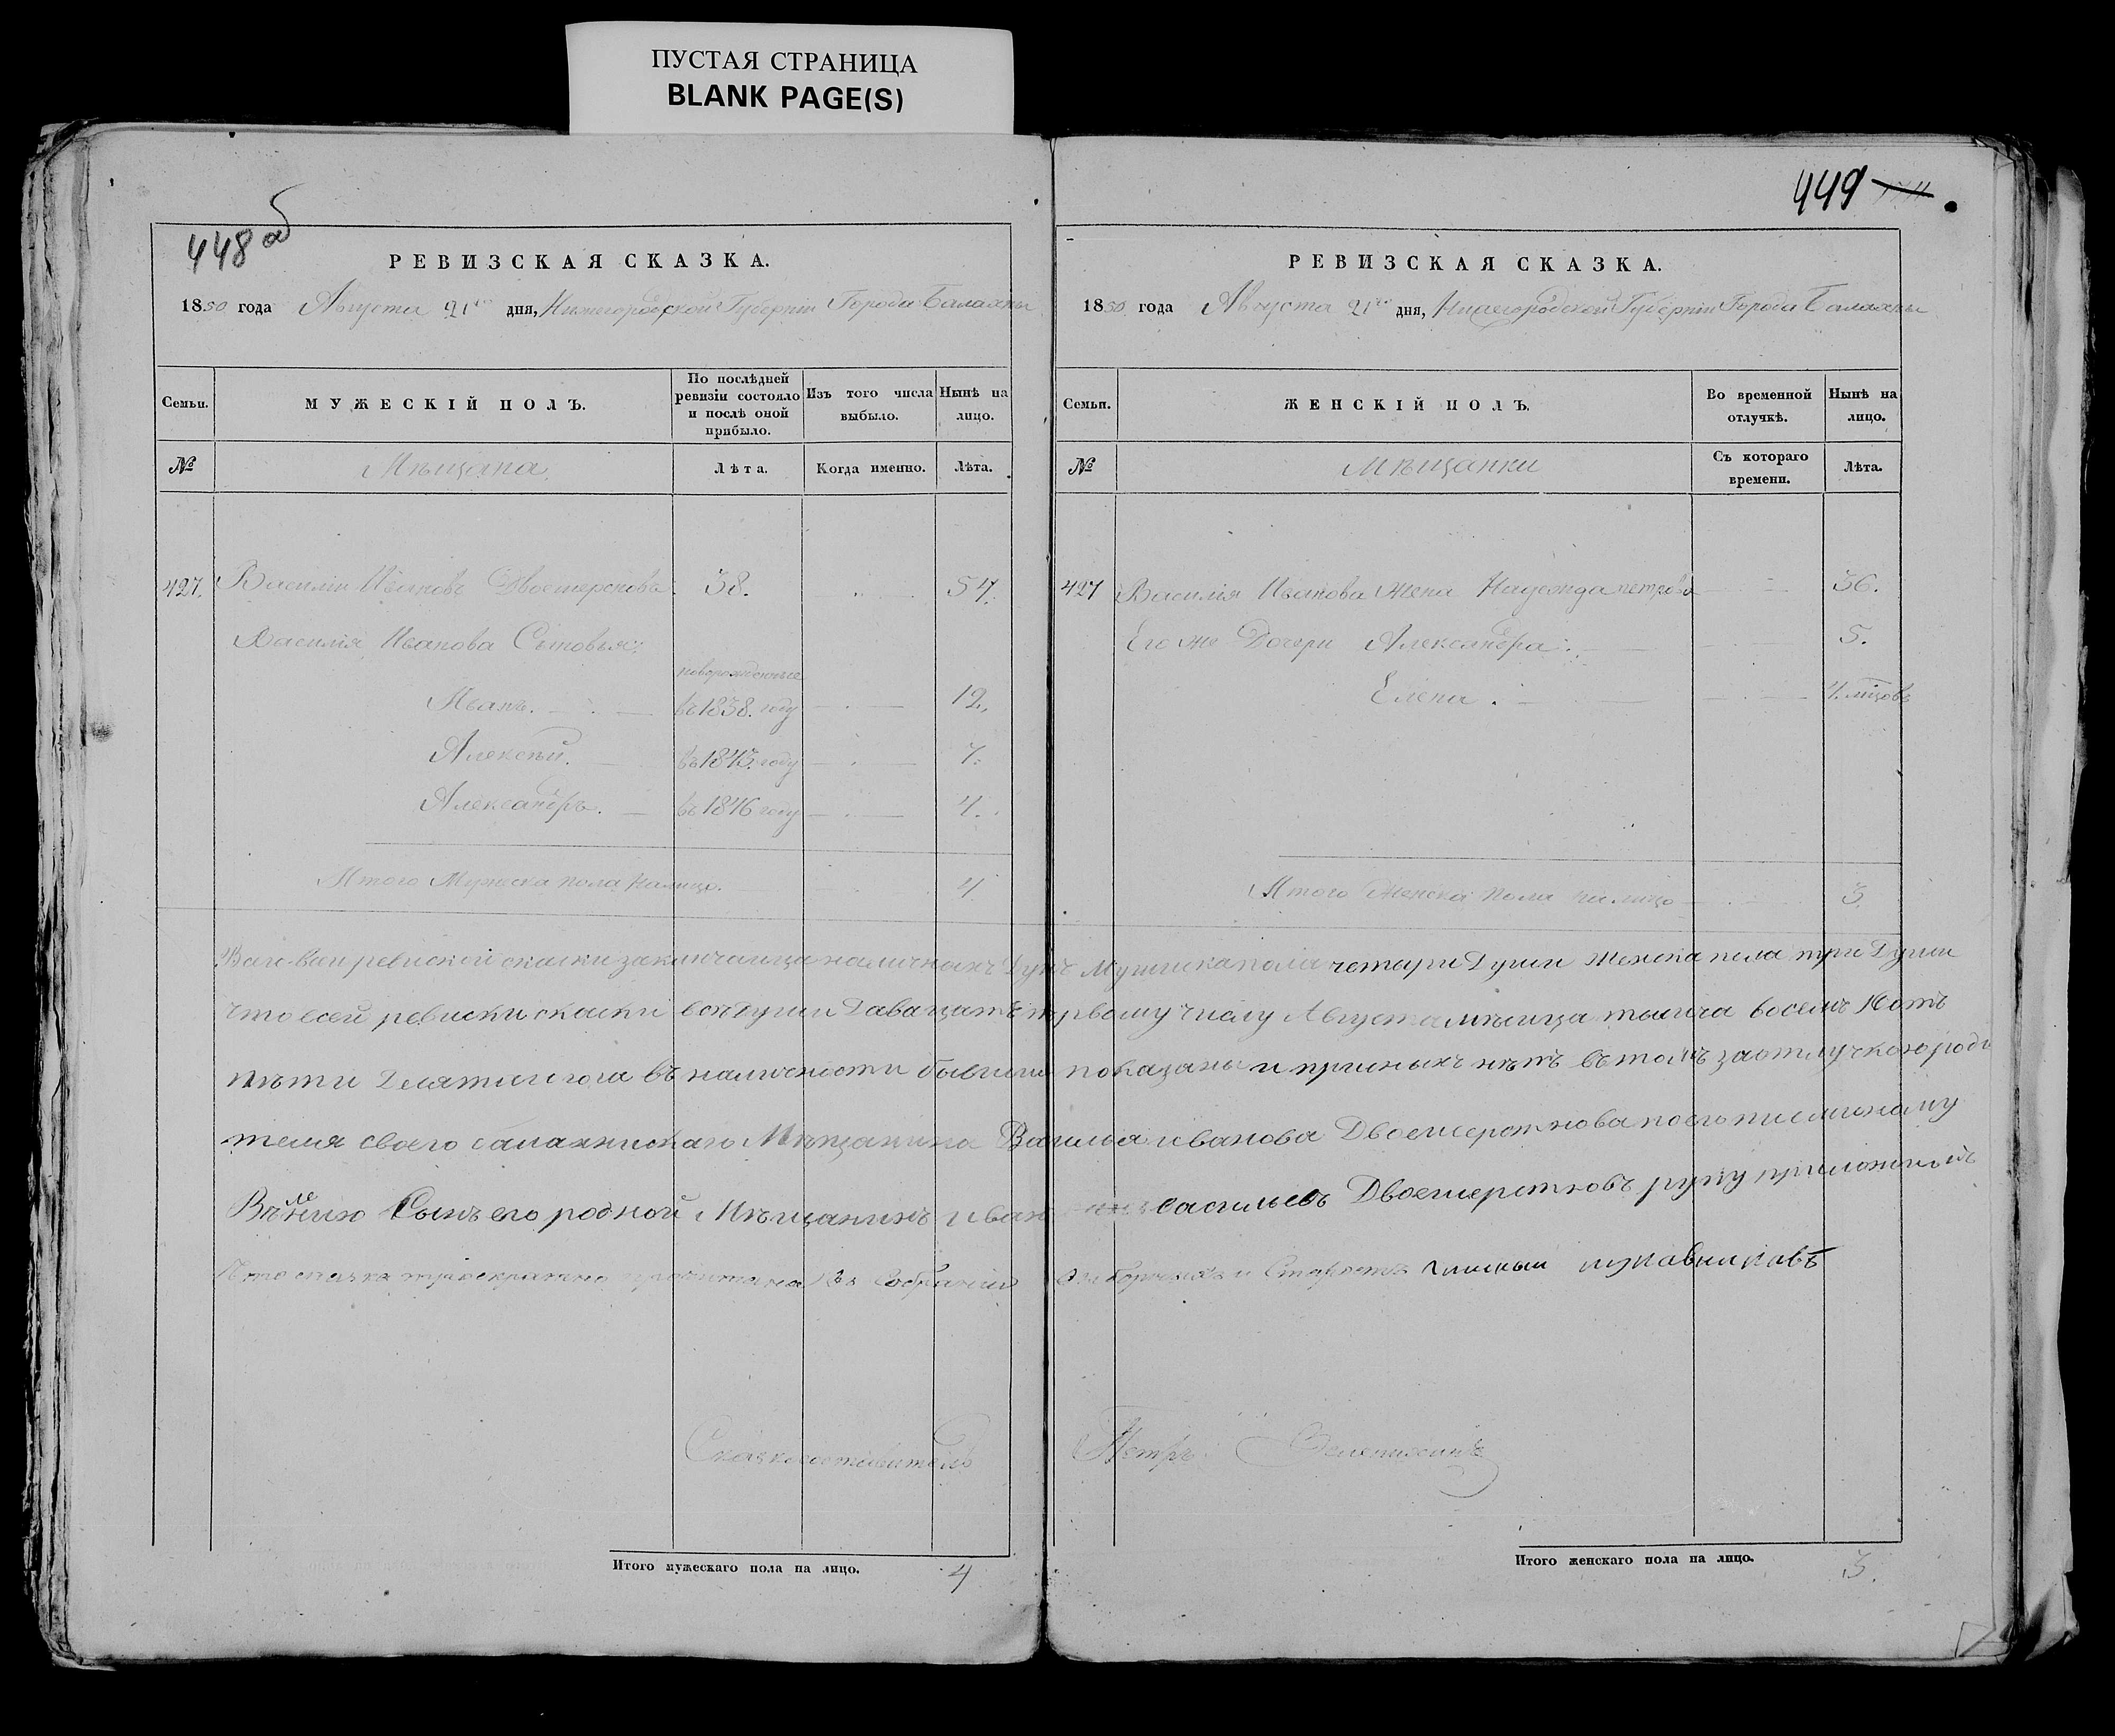 ПУСТАЯ СТРАНИЦА
BLANK PAGE(S)
448 об
РЕВИЗСКАЯ СКАЗКА.
1850 года Августа 21го дня, Нижегородской Губернiи Города Балахны
Семьи. МУЖЕСКIЙ ПОЛЪ. По послѣдней ревизiи состояло и послѣ оной прибыло. Изъ того числа выбыло. Нынѣ на лицо.
№ Мѣщана Лѣта. Когда именно. Лѣта.
427. Василiи Ивановъ Двоешерстновъ. 38. 54.
Василiя Иванова Сыновья:
новорожденные
Иванъ. въ 1838. году 12.
Алексѣй. въ 1843. году 7.
Александръ. въ 1846 году 4.
Итого Мужеска пола налицо. 4
449
РЕВИЗСКАЯ СКАЗКА.
1850 года Августа 21го дня, Нижегородской Губернiи Города Балахны
Семьи. ЖЕНСКIЙ ПОЛЪ. Во временной отлучкѣ. Нынѣ на лицо.
№ Мѣщанки Съ котораго времени. Лѣта.
427 Василiя Иванова Жена Надежда петрова 36.
Его же Дочери Александра. 5.
Елена. 4. мѣцовъ
Итого Женска пола налицо 3.
ревиской скаски заключаица наличныхъ Душъ Мужиска пола четыри Души женска пола три Души
что всей ревиски скаски всѣ Души Давацать первому числу Августа мѣсица тысича восемъ сотъ
пѣти Десятиго года въ наличности бывши показаны и присныхъ нѣтъ въ томъ за отлучкою роди
теля своего балахнискаго Мѣщанина Василья иванова Двоешерстнова по его писмоному
Вѣлению Сынъ его родной Мѣщанинъ иванъ васильевъ Двоешерстновъ руку приложилъ
сказка троекратно прочитана въ Собранiи Старостъ
Сказкосоставитель Петръ
Итого мужескаго пола на лицо. 4
Итого женскаго пола на лицо. 3.